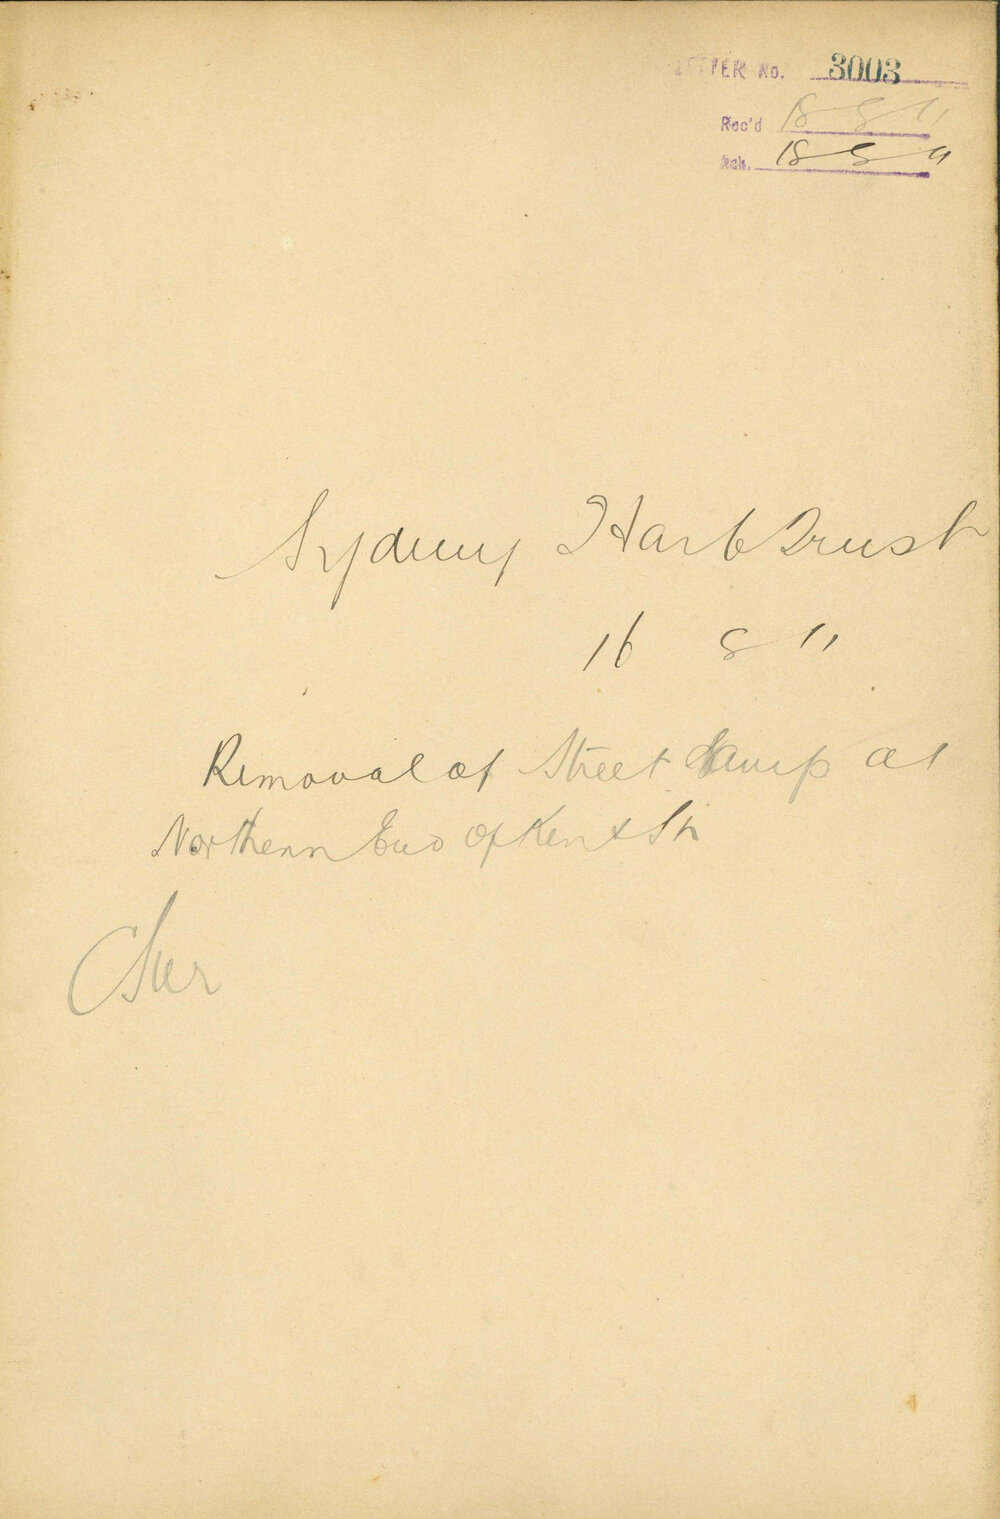 LETTER No. 3003
Rec'd 18 8 11
Ack. 18 8 11
Sydney Harb Trust
16 8 11
Removal of Street Lamp at
Northern End of Kent St